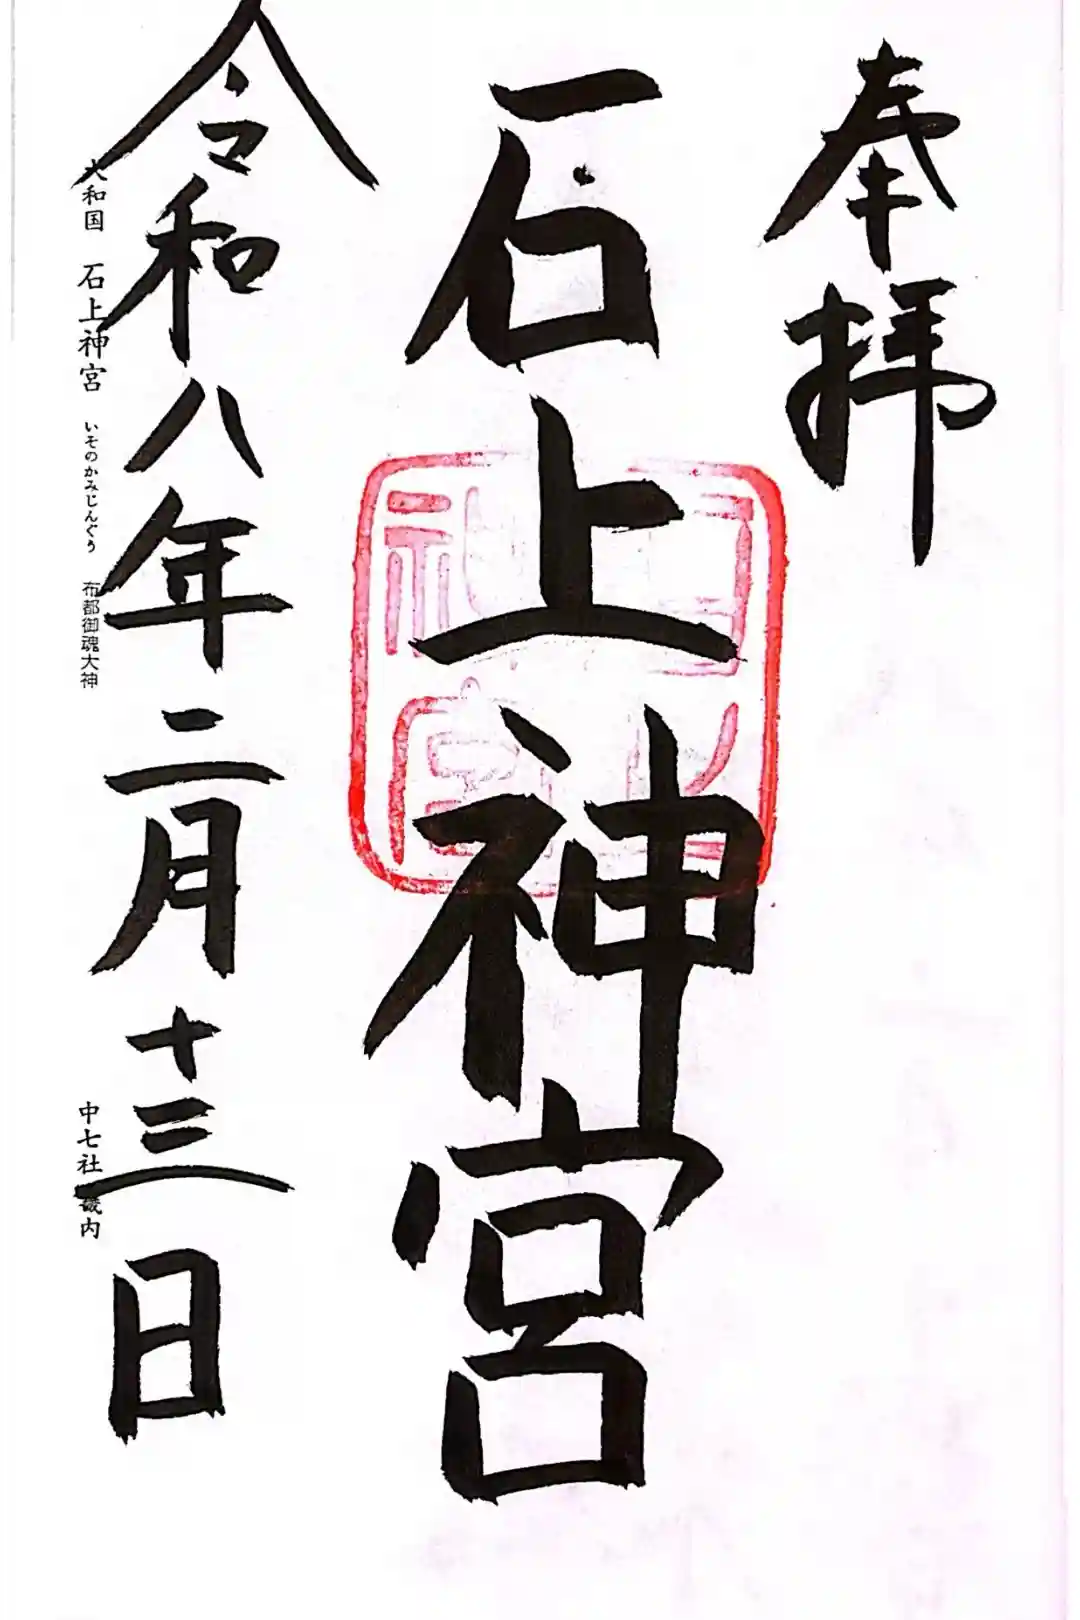 奉拝
石上神宮
石上神宮
令和八年二月十三日
大和国 石上神宮 いそのかみじんぐう 布都御魂大神
中七社 畿内